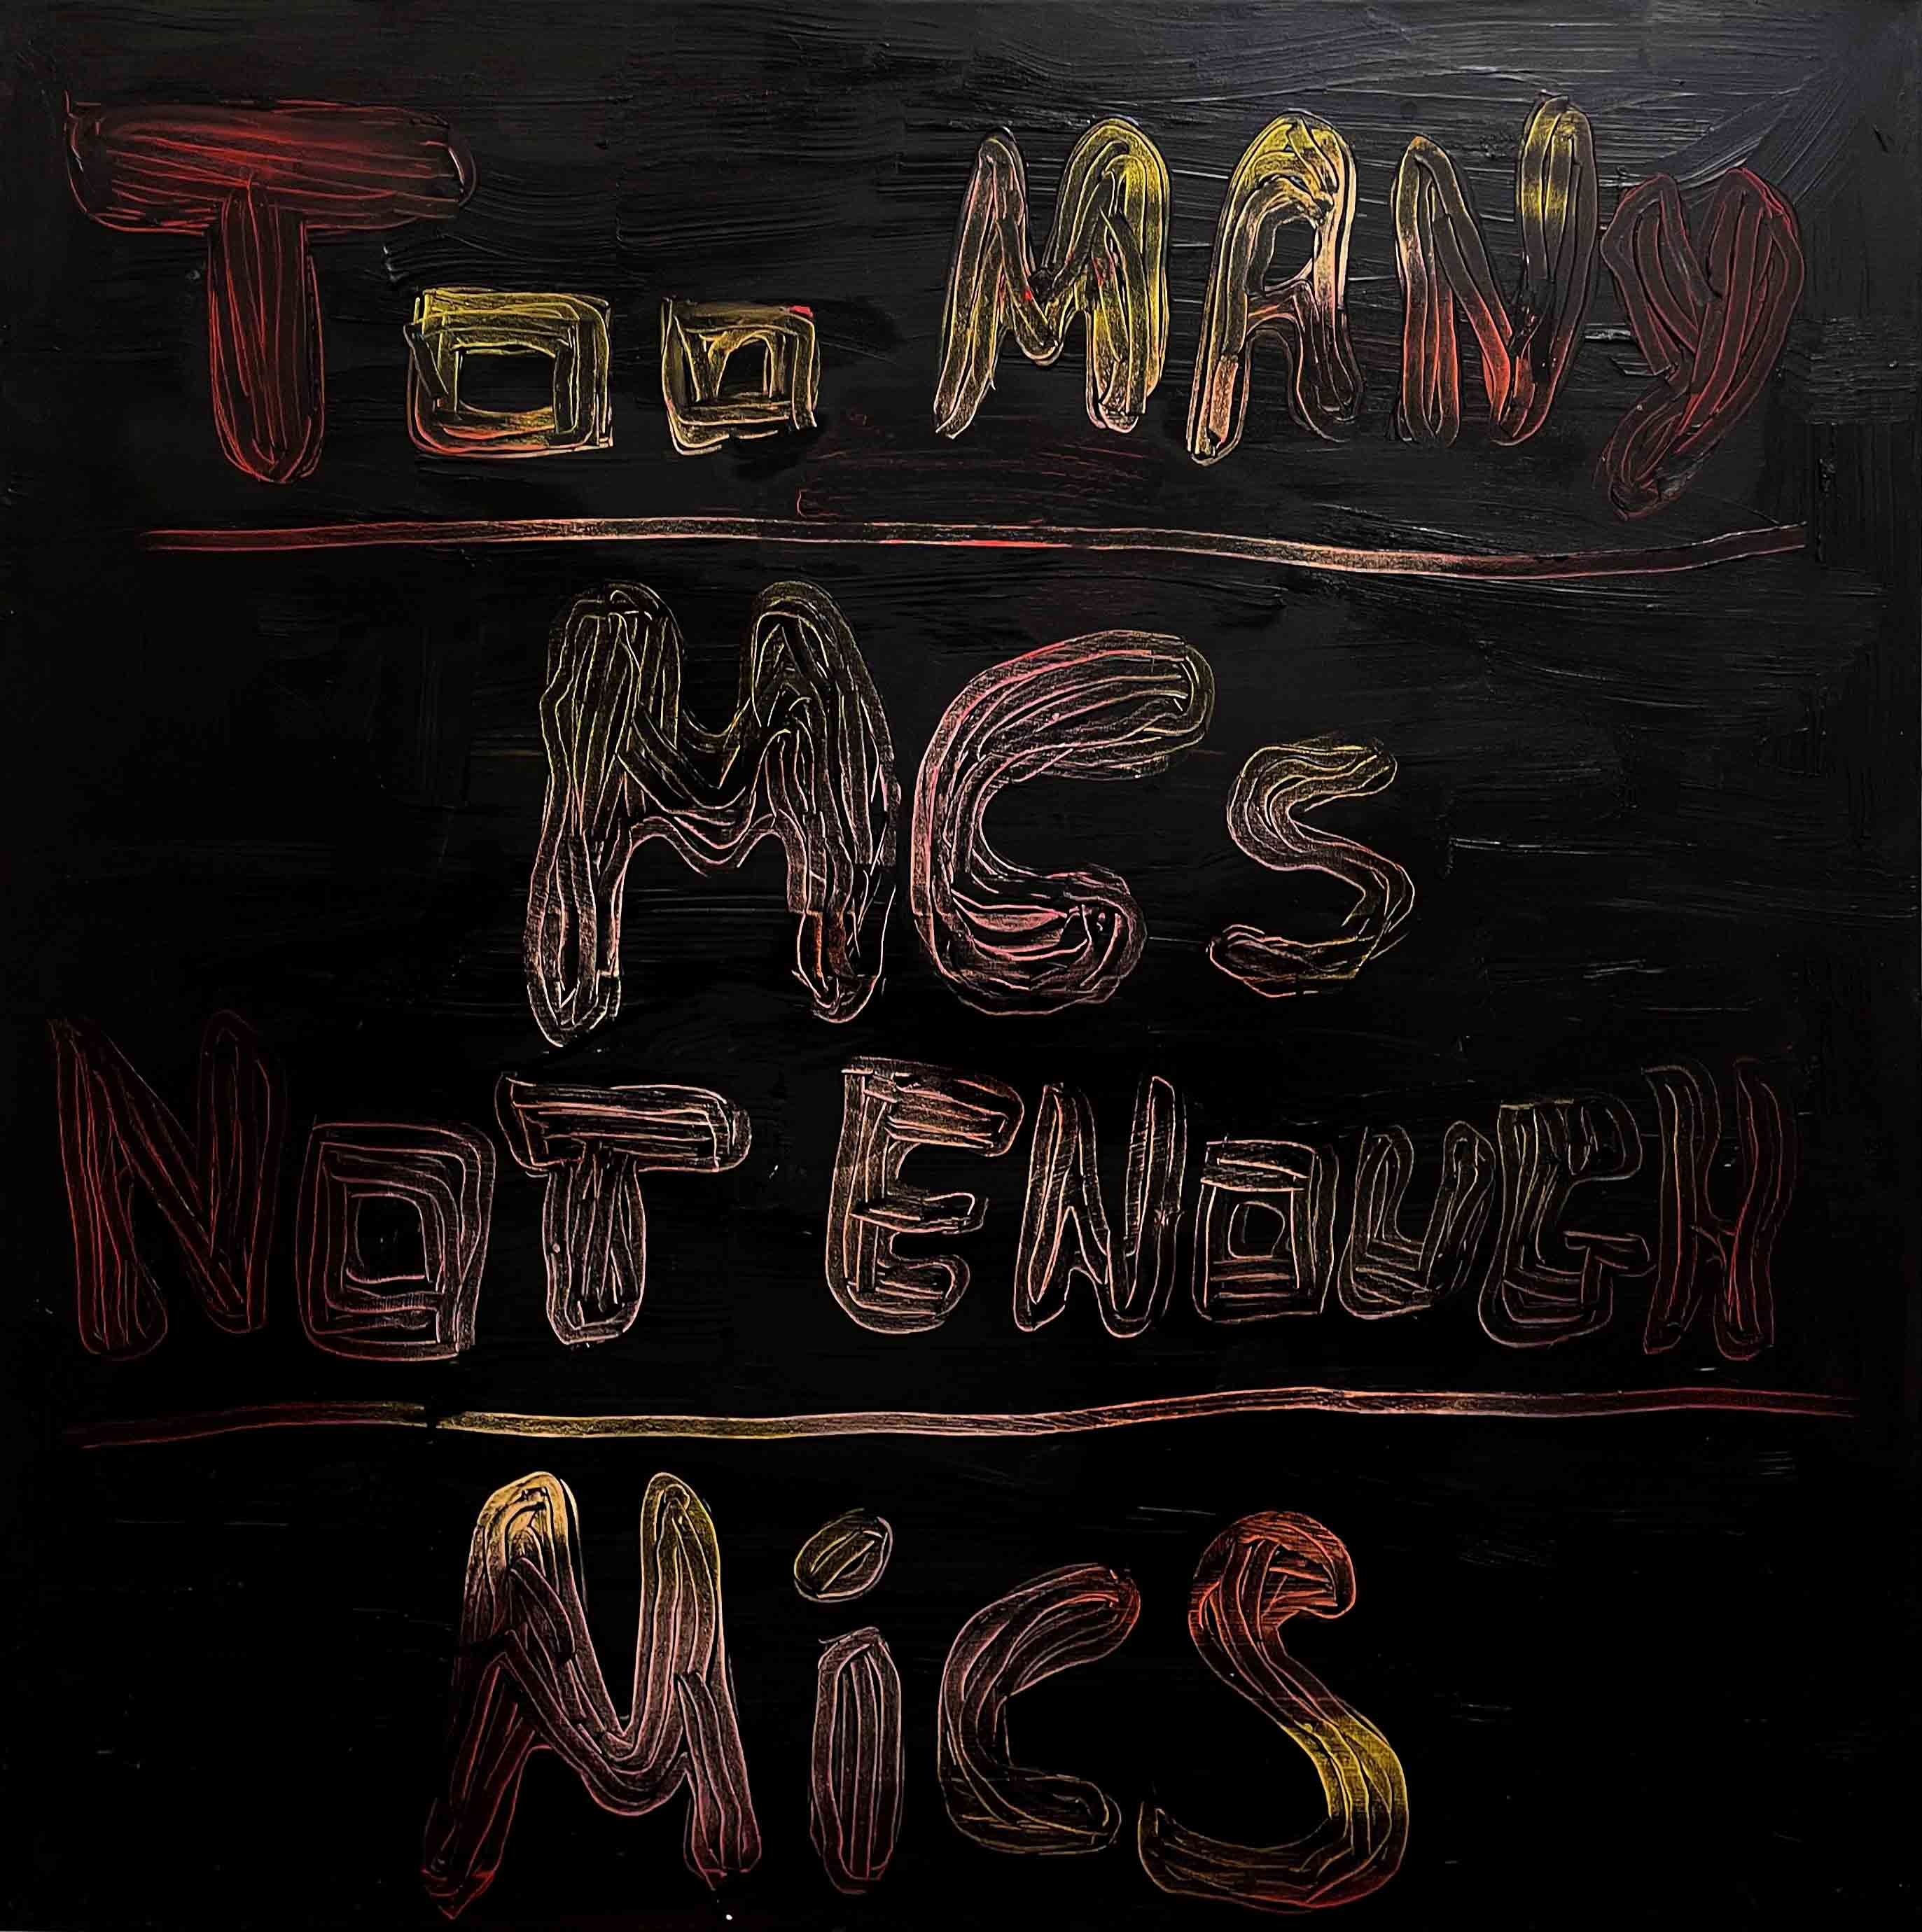 Too MANy
MCs
NOT ENOUGH
MiCS